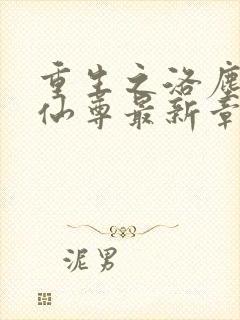 重生之洛塵
仙尊最新章
泥男